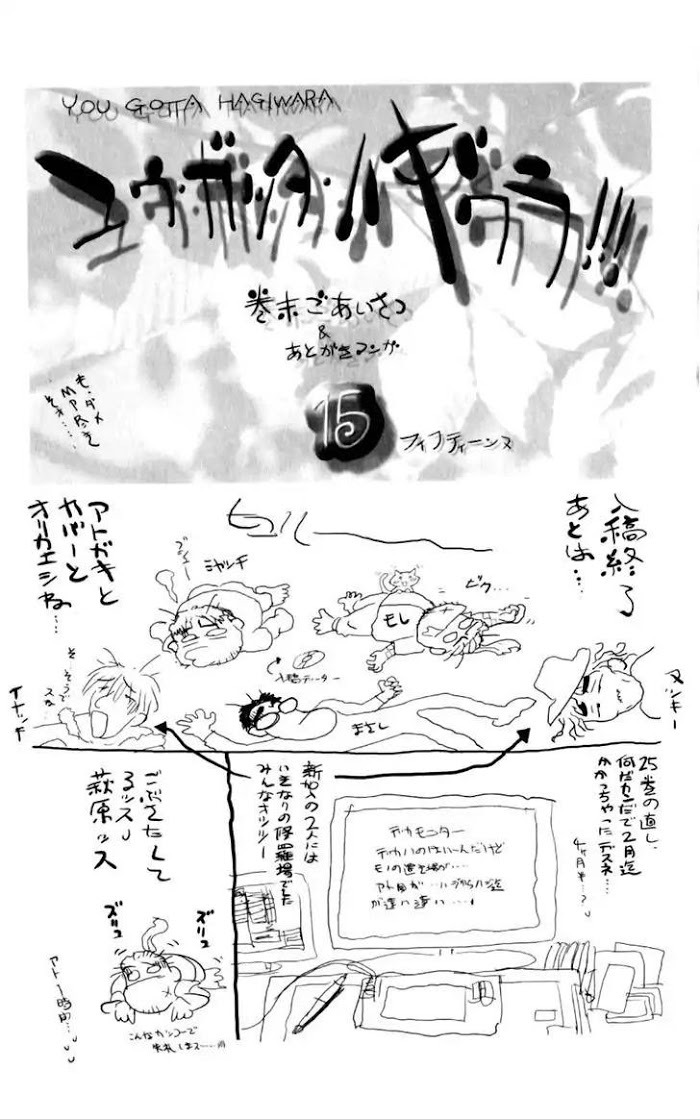 YOU GOTTA HAGIWARA
ユヴ・ガッタ・ハギワラ!!!!
巻末ごあいさつ
&
あとがきマンガ
15
フィフティーンヌ
も、ダメ
入稿終了
あとは…
アトガキと
カバーと
オリカエシね…
ピク…
ミヤンチ
ブシュー
もし
入稿データー
まさし
ヌンキー
イナッチ
そ・そうで
スか…
新加入の2人には
いきなりの修羅場でした
みんなオツッシー
25巻の直し、
何だカンだで2月迄
かかっちゃったデスネ…
4ヶ月も…?
デカモニター
デカイのはいーんだけど
モノの置き場が…
アト目が…ハジからハジ迄
が遠い遠い…!
ごぶさたして
るッス
萩原ッス
ズリュ
ズリュ
こんなカッコーで
失礼しまス
アト1時間…